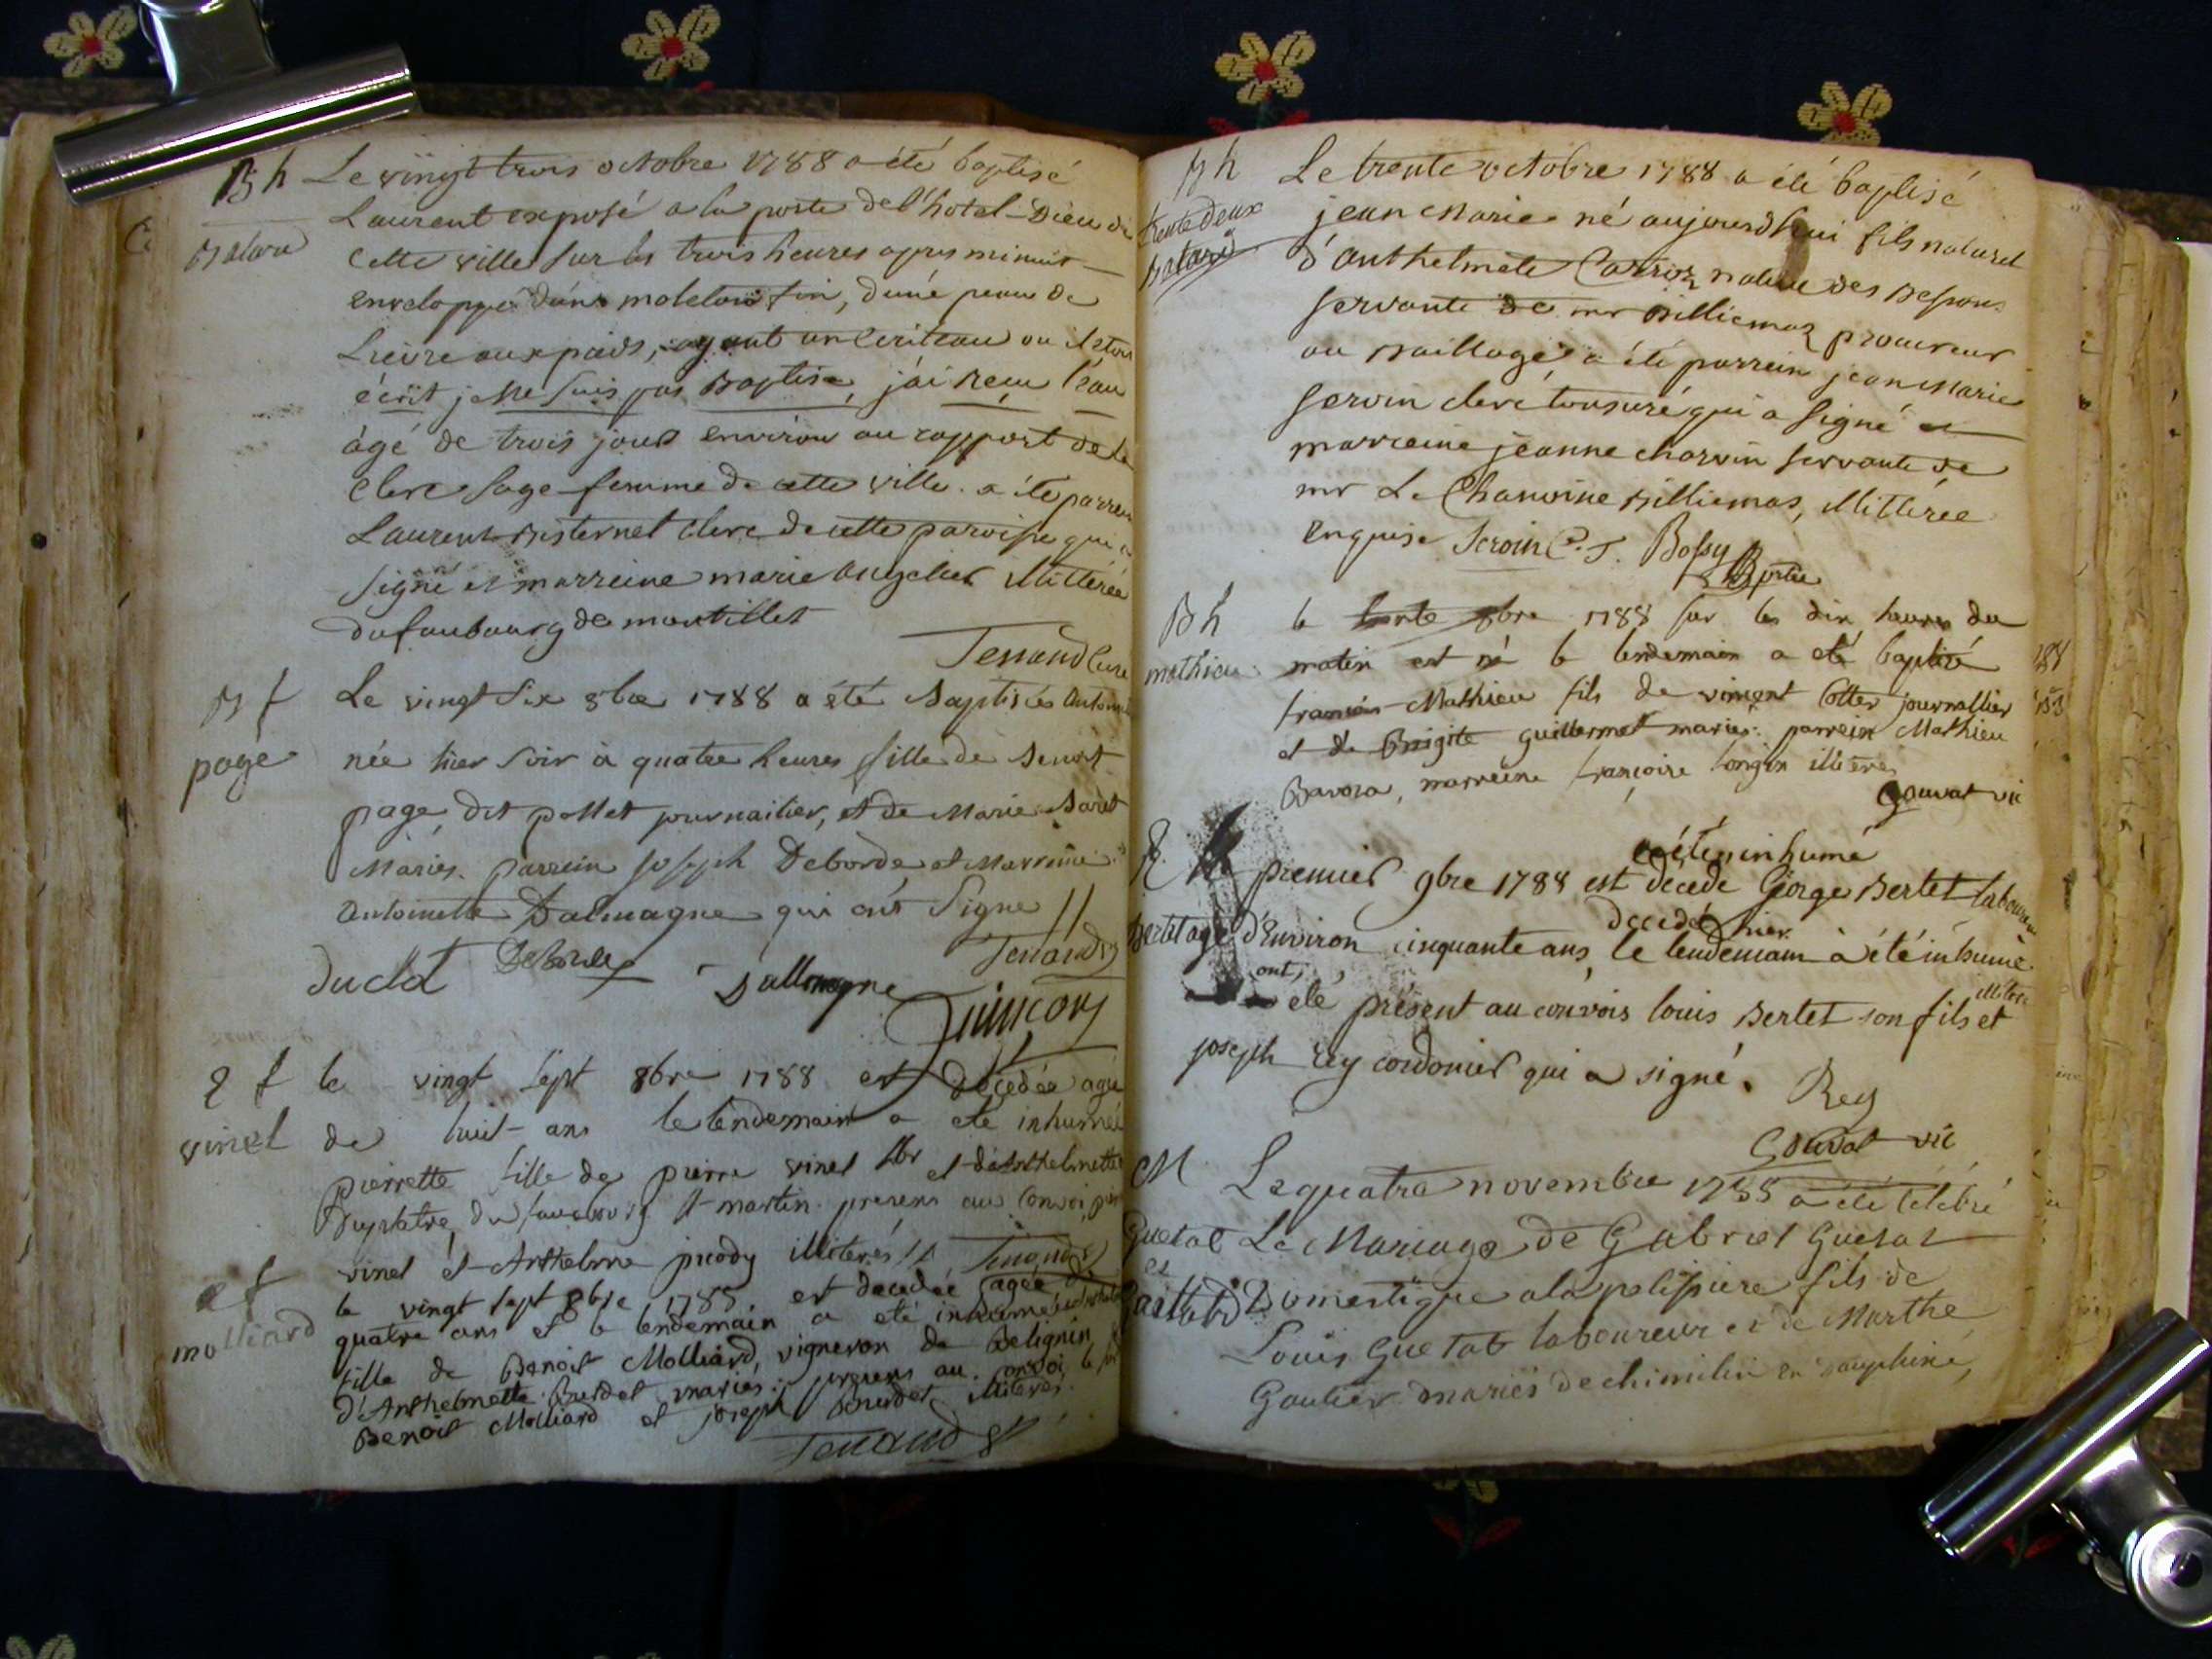 Bh Le vingt trois octobre 1788 a été baptisé
Batard
Laurent exposé a la porte de l'hotel-Dieu de
cette ville sur les trois heures apres minuit
enveloppé dans moleton fin, d'une peau de
Lievre aux pieds, ayant un ecriteau ou il etoit
écrit je ne suis pas Baptisé, j'ai reçu l'eau
âgé de trois jours environ au rapport de la
Clerc sage-femme de cette ville. a été parrein
Laurent clerc de cette paroisse qui a
signé et marreine marie illitérée
du faubourg de
Tenand Curé
B f
page
Le vingt six 8bre 1788 a été Baptisée
née hier soir à quatre heures fille de Benoit
page, dit pollet journailier, et de Marie
Mariés. parrein joseph Deborde et Marreine
antoinette Dalmagne qui ont signé //
Tenand
duclot Deborde Dallmagne
Guincony
E f
vinet
le vingt sept 8bre 1788 est decedée agée
de huit ans le lendemain a eté inhumée
pierrette fille de pierre vinet et d'Anthelmette
Duplatre du fauxbourg st-martin presens au convoi
vinet et Anthelme illiterés Tenand
e f
molliard
le vingt sept 8bre 1788 est decedée agée de
quatre ans et le lendemain a eté inhumée
fille de Benoit Molliard, vigneron de Belignin
d'Anthelmette Burdet mariés: presens au convoi, le
Benoit Molliard et joseph Burdet illiterés.
Tenand
B h
trente deux
Batard
Le trente octobre 1788 a été baptisé
jean Marie né aujourdhui fils naturel
d'anthelmete native des
servante de mr Billiemaz procureur
au Baillage, a été parrein jean Marie
Servin clerc tonsuré qui a signé et
marreine jeanne charvin servante de
mr Le Chanoine Billiemas, illitérée
enquise C. T. Bossy
B h
mathieu
le trente 8bre 1788 sur les dix heures du
matin est né le lendemain a eté baptisé
françois-Mathieu fils de vincent Cottet journallier
et de Brigite Guillermet mariés: parrein Mathieu
Bavoza, marreine françoise longin illiterés
Gouvat vic
a été inhumé
premier 9bre 1788 est décedé George Bertet laboureur
décedé hier
Bertet agé d'Environ cinquante ans, le lendemain à été inhumé
ont,
été présent au convois louis Bertet son fils et
joseph Rey cordonier qui a signé.
Rey
Gouvat vic
M
Guetat
et
Le quatre novembre 1788 a été célébré
Le Mariage de Gabriel Guetat
Domestique a la pelissiere fils de
Louis Guetat laboureur et de Marthe
Goutier mariés de chimilin en Dauphiné,